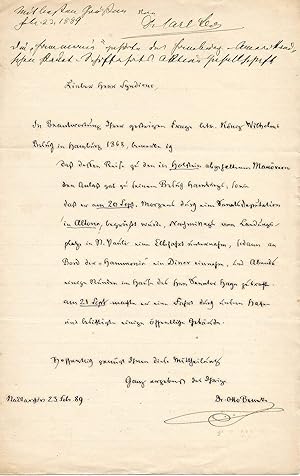 Mit besten Grüßen von
Feb. 23. 1889 Dr. Carl
Die „Hammonia“ gehörte der Hamburg-Amerikani-
schen Packet-Schiffahrt Actien Gesellschaft
Lieber Herr Syndicus.
In Beantwortung Ihrer gestrigen Frage betr. König Wilhelms
Besuch in Hamburg 1868, bemerke ich
daß dessen Reise zu den in Holstein abgehaltenen Manövern
den Anlaß gab zu seinem Besuch Hamburgs, sowie
daß er am 20 Sept. Morgens durch eine Senatsdeputation
in Altona, begrüßt wurde, Nachmittags vom Landungs-
platz in St. Pauli eine Elbfahrt unternahm, sodann an
Bord der „Hammonia“ ein Diner einnahm, und Abends
einige Stunden im Hause des Hrn. Senator Hayn zubrachte.
am 21 Sept. machte er eine Fahrt durch unseren Hafen
und besichtigte einige öffentliche Gebäude.
Hoffentlich genügt Ihnen diese Mittheilung
Ganz ergebenst der Ihrige
23 Feb. 89. Dr. Otto Beneke